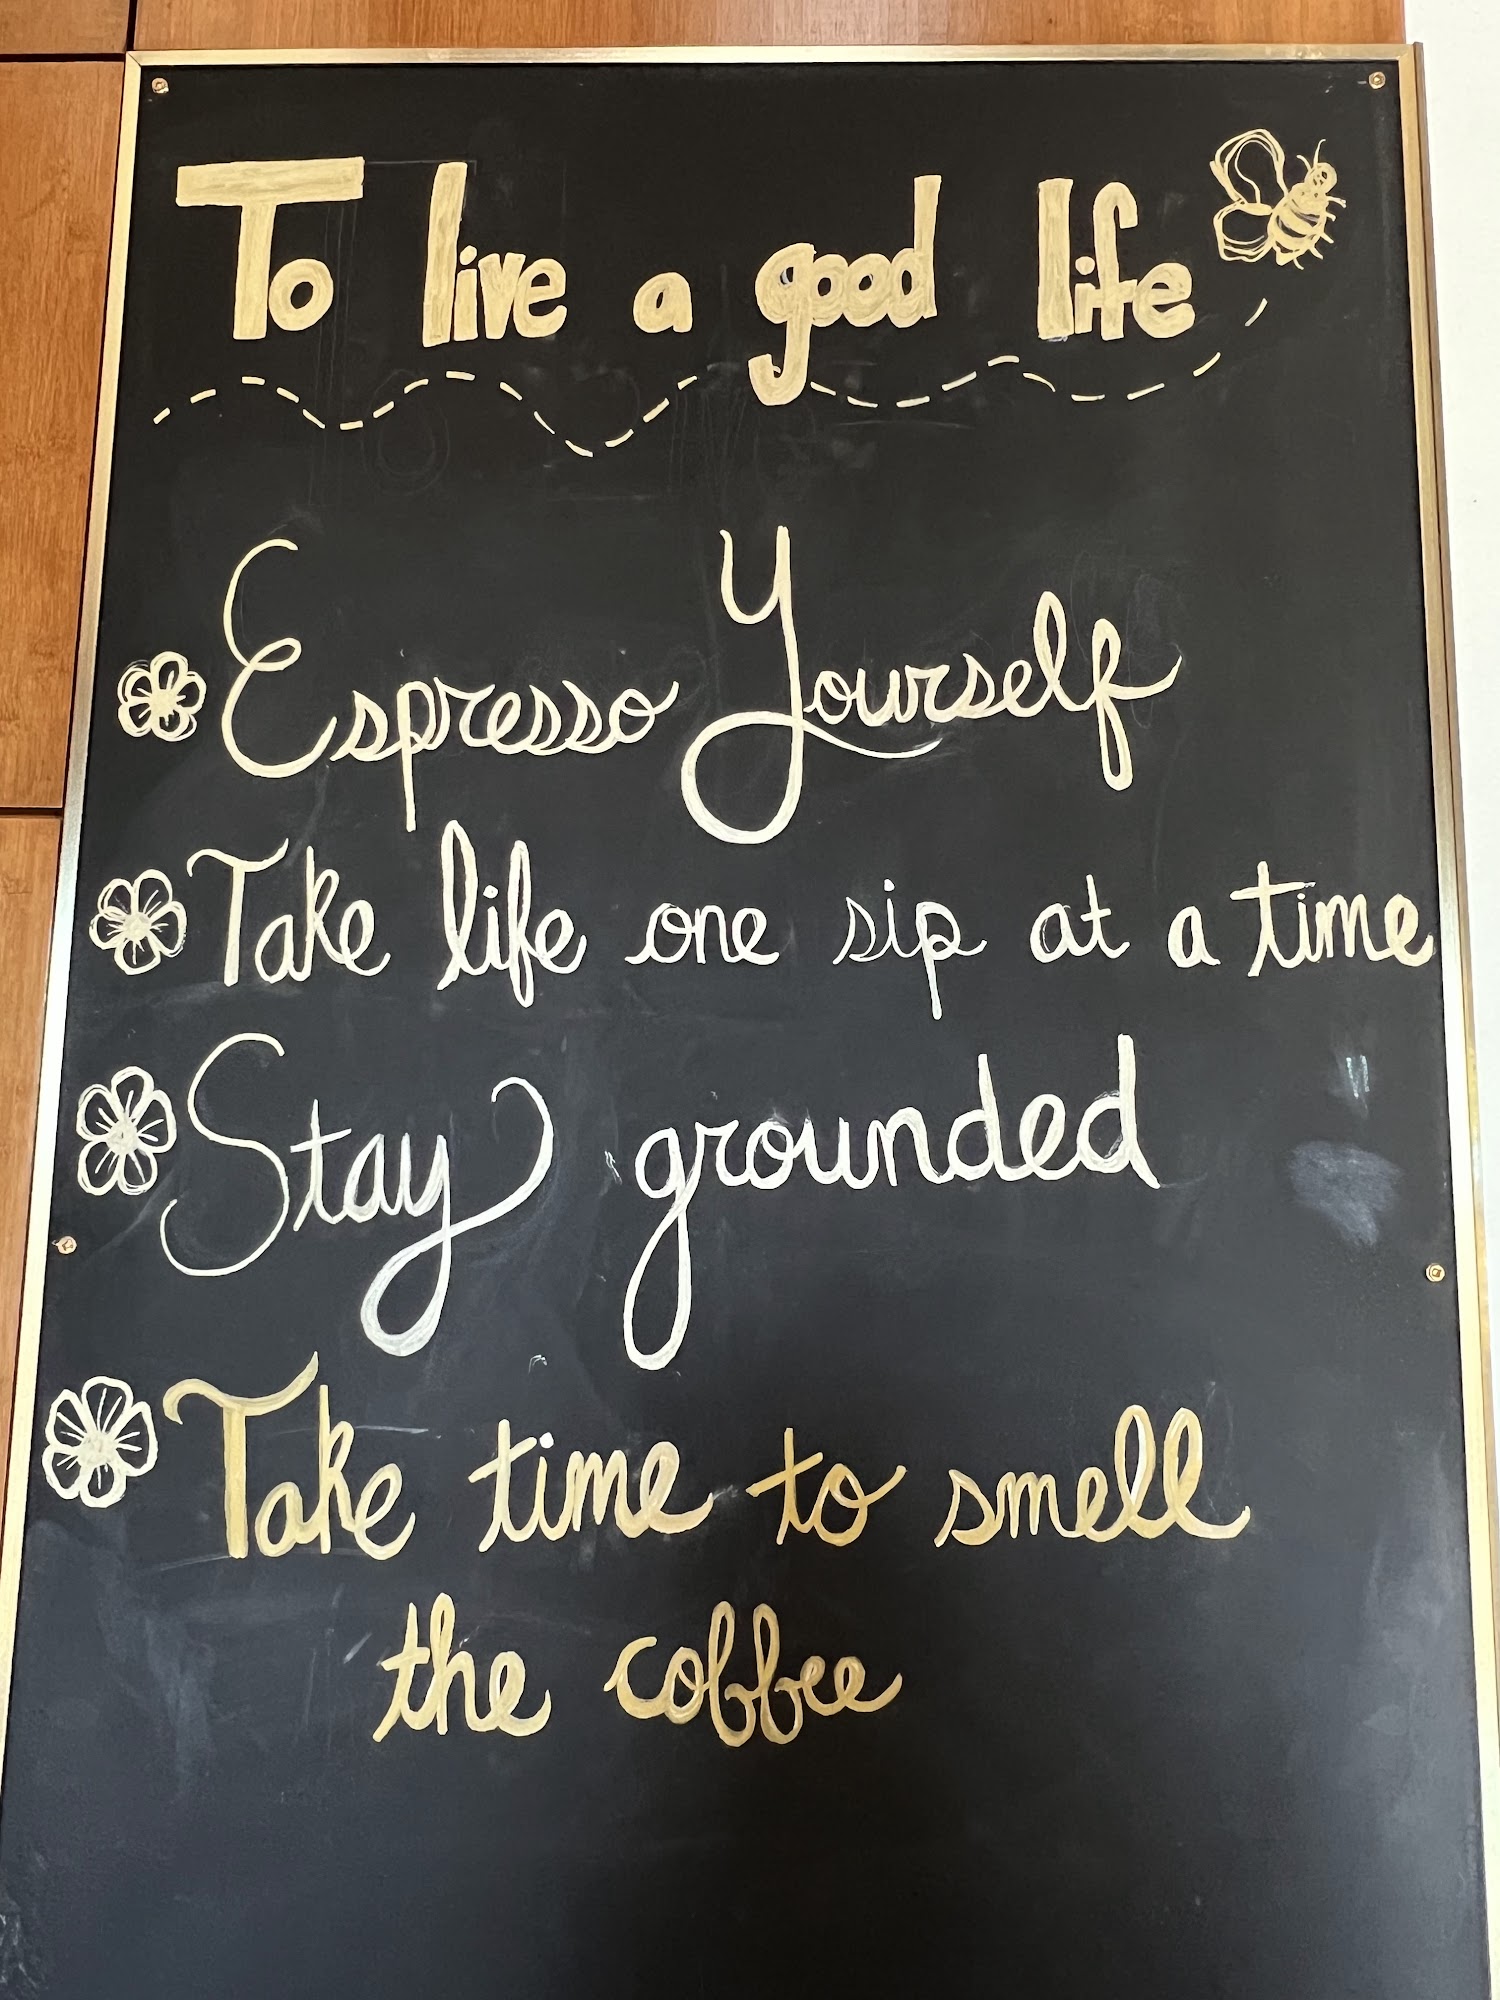 To live a good life
Espresso Yourself
Take life one sip at a time
Stay grounded
Take time to smell
the coffee